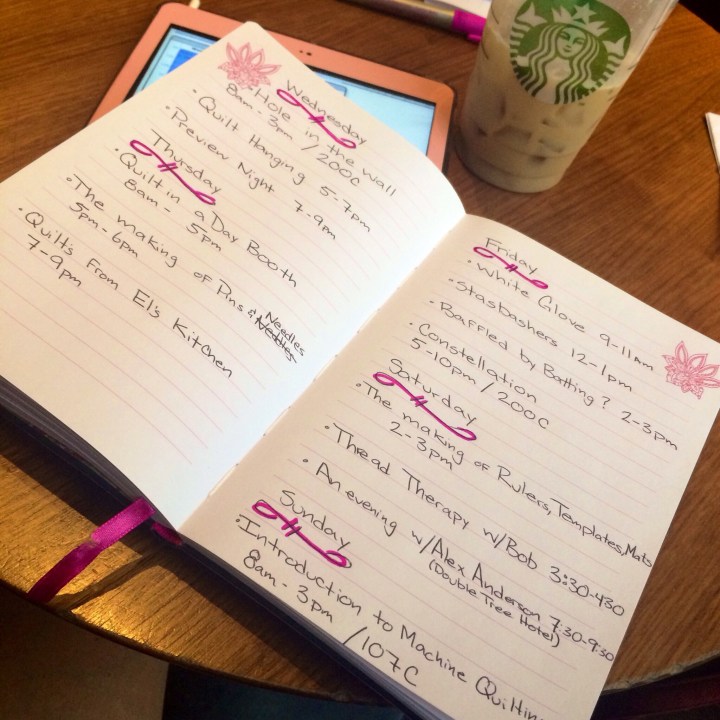 Wednesday
• Hole in the wall
8am - 3pm / 200C
• Quilt Hanging 5-7pm
• Preview Night 7-9pm
Thursday
• Quilt in a Day Booth
8am - 5pm
• The making of Pins & Needles
5pm - 6pm
• Quilts From El's Kitchen
7-9pm
Friday
• White Glove 9-11am
• Stasbashers 12-1pm
• Baffled by Batting? 2-3pm
• Constellation
5-10pm / 200C
Saturday
• The making of Rulers, Templates, Mats
2-3pm
• Thread Therapy w/Bob 3:30-430
• An evening w/Alex Anderson 7:30-9:30
(Double Tree Hotel)
Sunday
• Introduction to Machine Quiltin
8am - 3pm / 107C